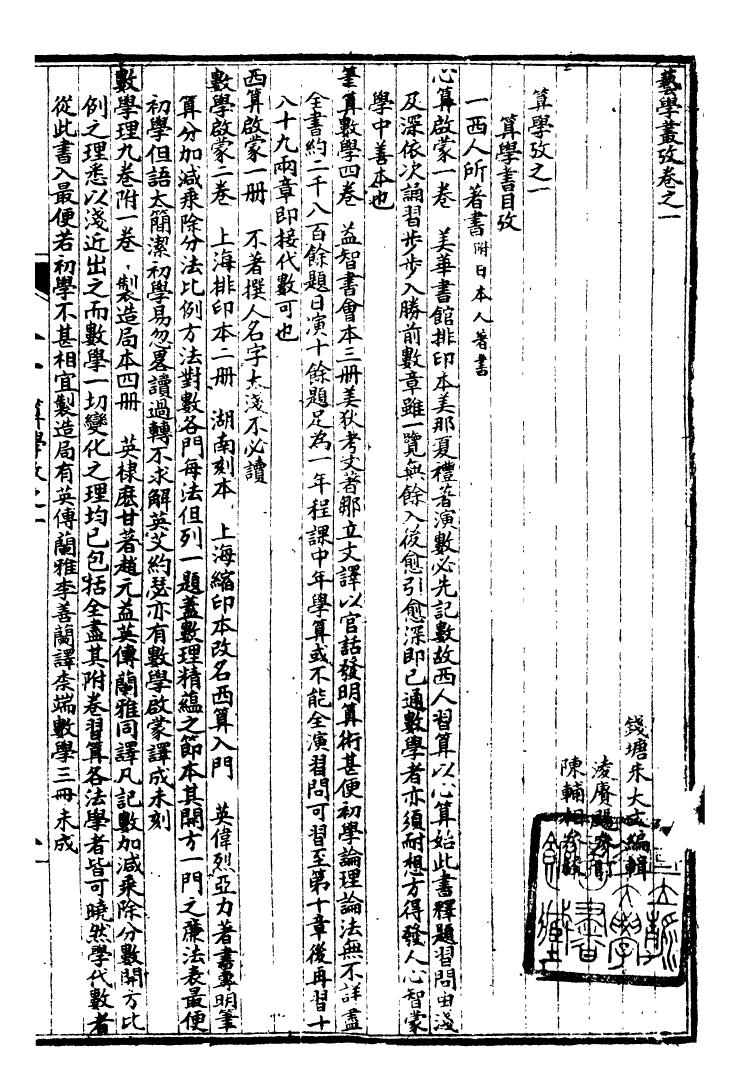 藝學叢攷卷之一
錢塘朱大文編輯
淩賡颺參訂
陳輔相參校
算學攷之一
算學書目攷
一西人所著書附日本人著書
心算啟蒙一卷　美華書館排印本美那夏禮著演數必先記數故西人習算以心算始此書釋題習問由淺
及深依次誦習步步入勝前數章雖一覽無餘入後愈引愈深即已通數學者亦須耐想方得發人心智蒙
學中善本也
筆算數學四卷　益智書會本三册美狄考文著鄒立文譯以官話發明算術甚便初學論理論法無不詳盡
全書約二千八百餘題日演十餘題足為一年程課中年學算或不能全演習問可習至第十章後再習十
八十九兩章即接代數可也
西算啟蒙一册　不著撰人名字太淺不必讀
數學啟蒙二卷　上海排印本二册　湖南刻本　上海縮印本改名西算入門　英偉烈亞力著書專明筆
算分加減乘除分法比例方法對數各門每法但列一題蓋數理精蘊之節本其開方一門之廉法表最便
初學但語太簡潔初學易忽畧讀過轉不求解英艾約瑟亦有數學啟蒙譯成未刻
數學理九卷附一卷　製造局本四册　英棣麼甘著趙元益英傅蘭雅同譯凡記數加減乘除分數開方比
例之理悉以淺近出之而數學一切變化之理均已包括全盡其附卷習算各法學者皆可曉然學代數者
從此書入最便若初學不甚相宜製造局有英傅蘭雅李善蘭譯柰端數學三冊未成
算學攷之一